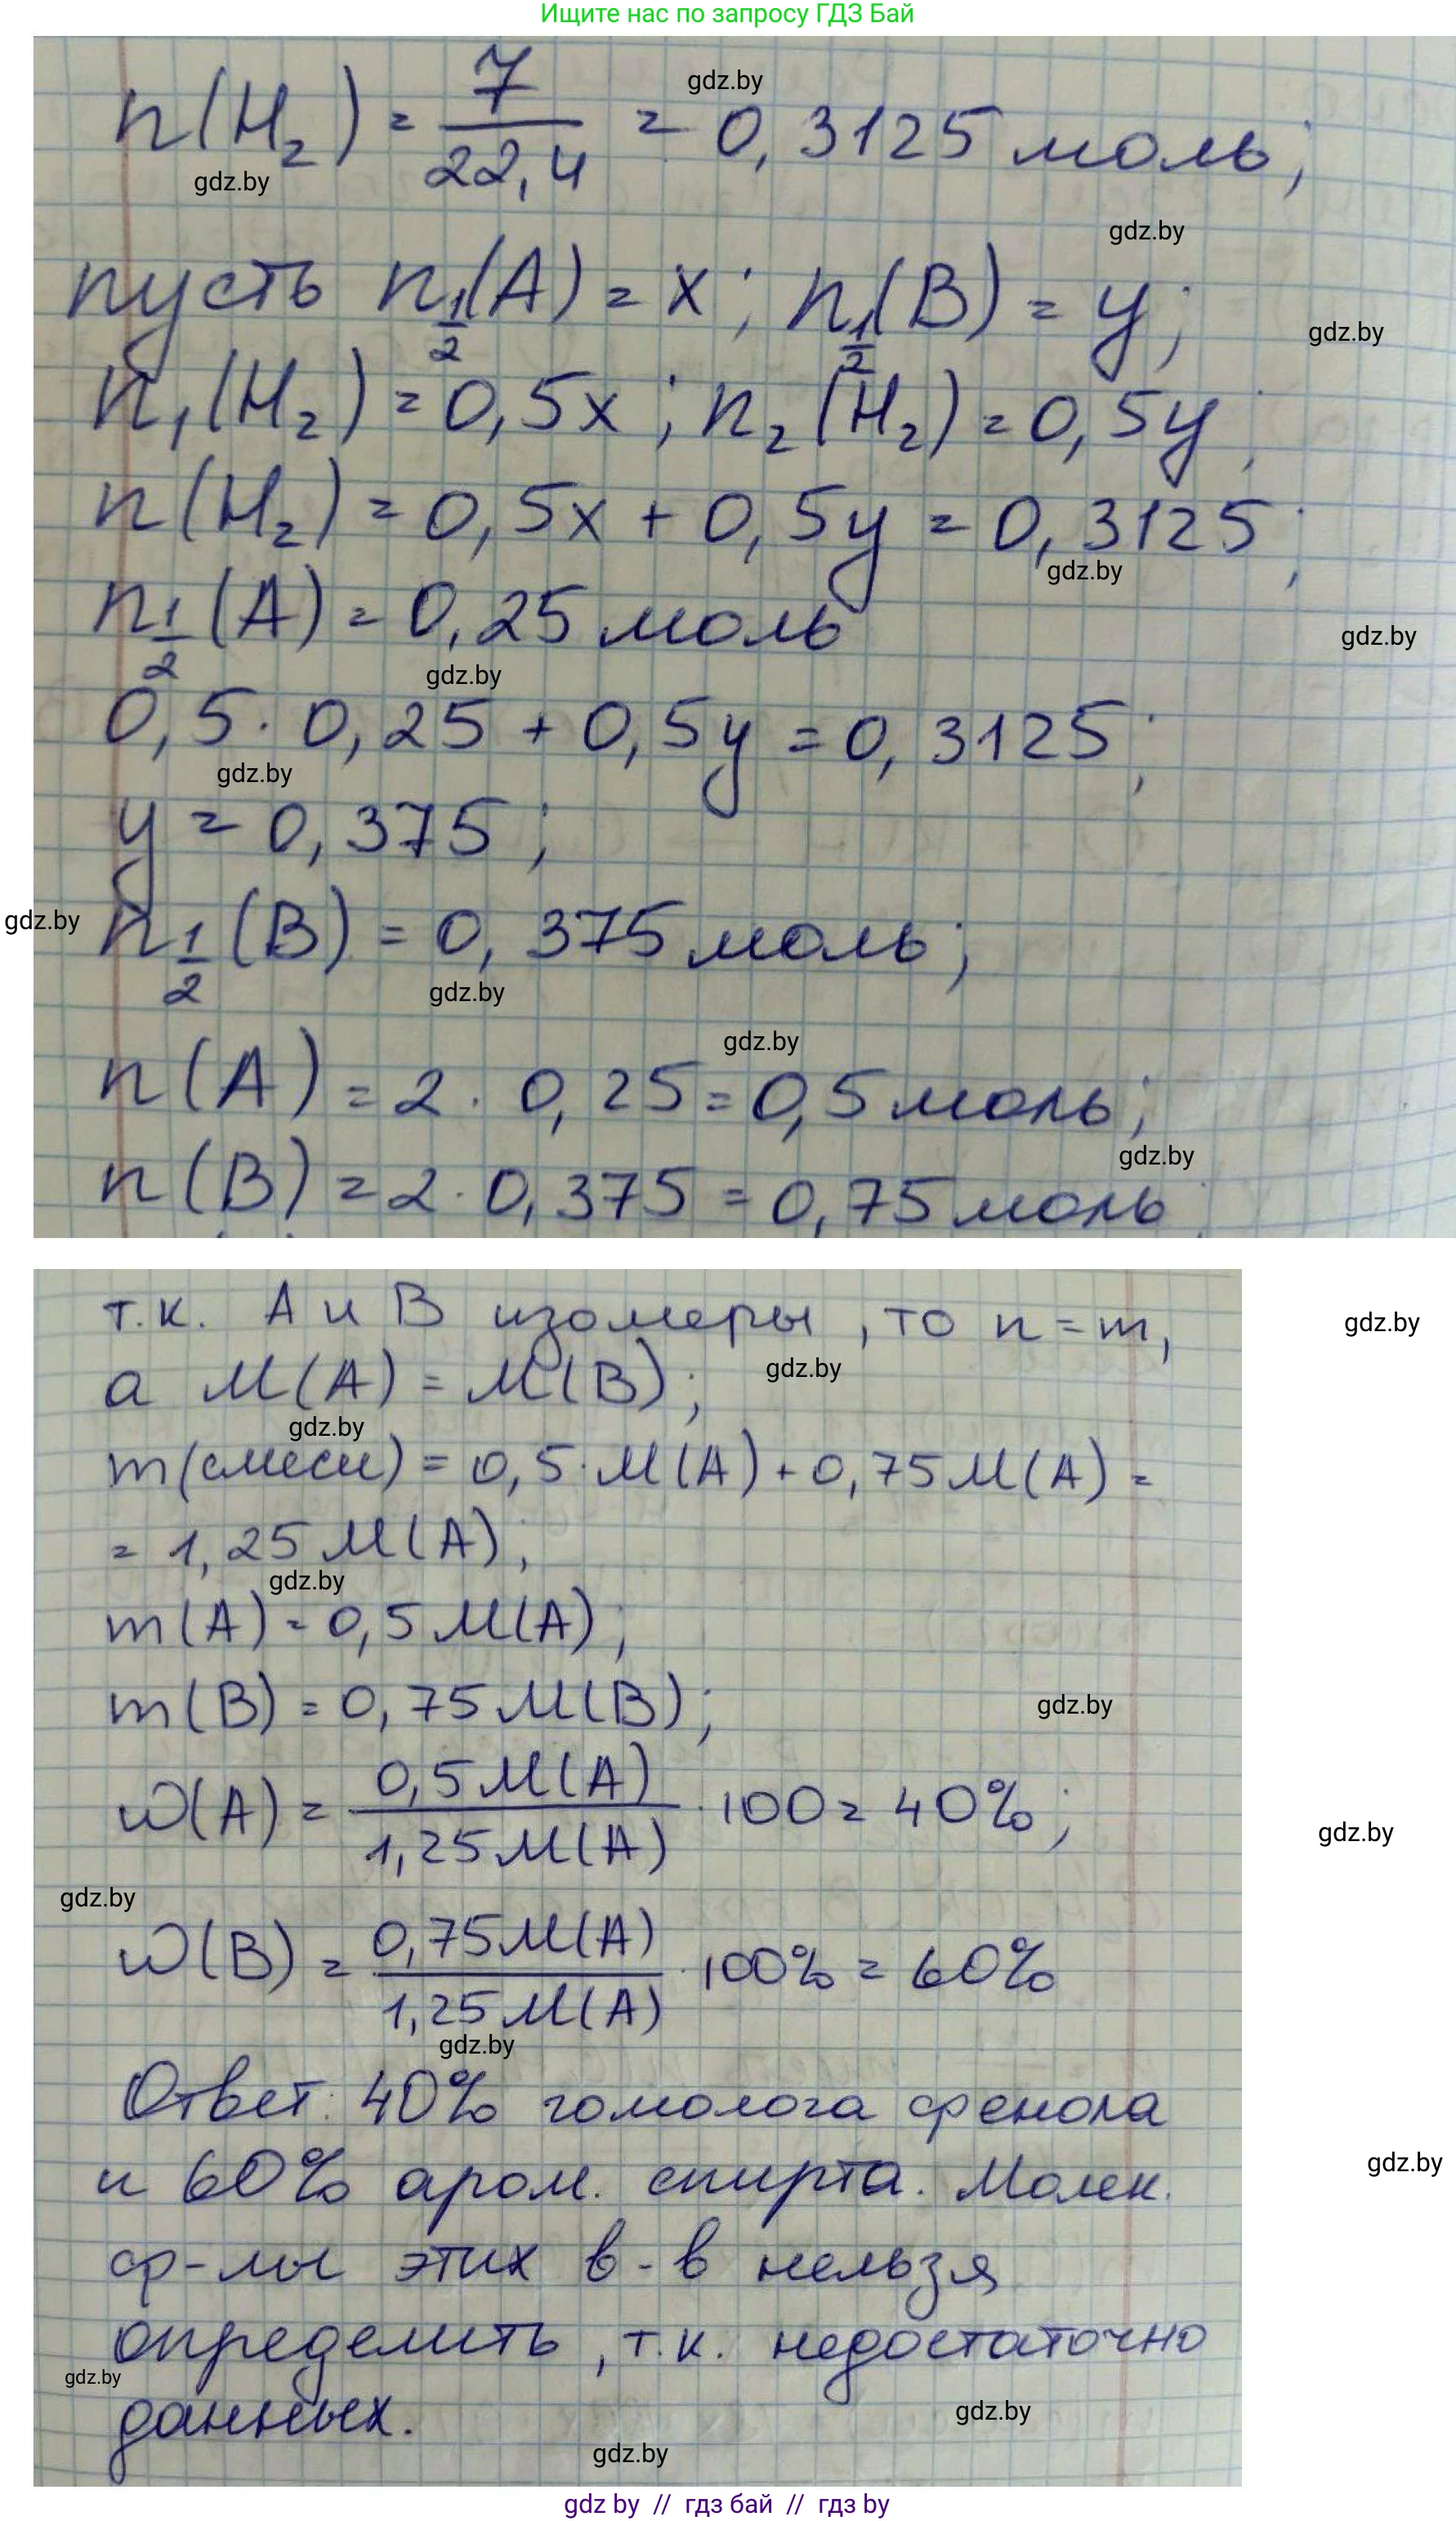 Ищите нас по запросу ГДЗ Бай
n(H₂) = 7/22,4 = 0,3125 моль;
gdz.by
gdz.by
gdz.by
пусть n½(A) = x; n½(B) = y;
gdz.by
n₁(H₂) = 0,5x; n₂(H₂) = 0,5y;
n(H₂) = 0,5x + 0,5y = 0,3125;
gdz.by
n½(A) = 0,25 моль
gdz.by
gdz.by
0,5 · 0,25 + 0,5y = 0,3125;
gdz.by
y = 0,375;
gdz.by
n½(B) = 0,375 моль;
gdz.by
gdz.by
n(A) = 2 · 0,25 = 0,5 моль;
gdz.by
n(B) = 2 · 0,375 = 0,75 моль;
т.к. A и B изомеры, то n = m,
gdz.by
gdz.by
а M(A) = M(B);
gdz.by
m(смеси) = 0,5 · M(A) + 0,75 M(A) =
= 1,25 M(A);
gdz.by
m(A) = 0,5 M(A);
m(B) = 0,75 M(B);
gdz.by
w(A) = 0,5 M(A)/1,25 M(A) · 100 = 40%;
gdz.by
gdz.by
w(B) = 0,75 M(A)/1,25 M(A) · 100% = 60%
gdz.by
Ответ: 40% гомолога фенола
и 60% аром. спирта. Молек.
gdz.by
ф-лы этих в-в нельзя
определить, т.к. недостаточно
gdz.by
данных.
gdz.by
gdz.by
gdz by // гдз бай // гдз by